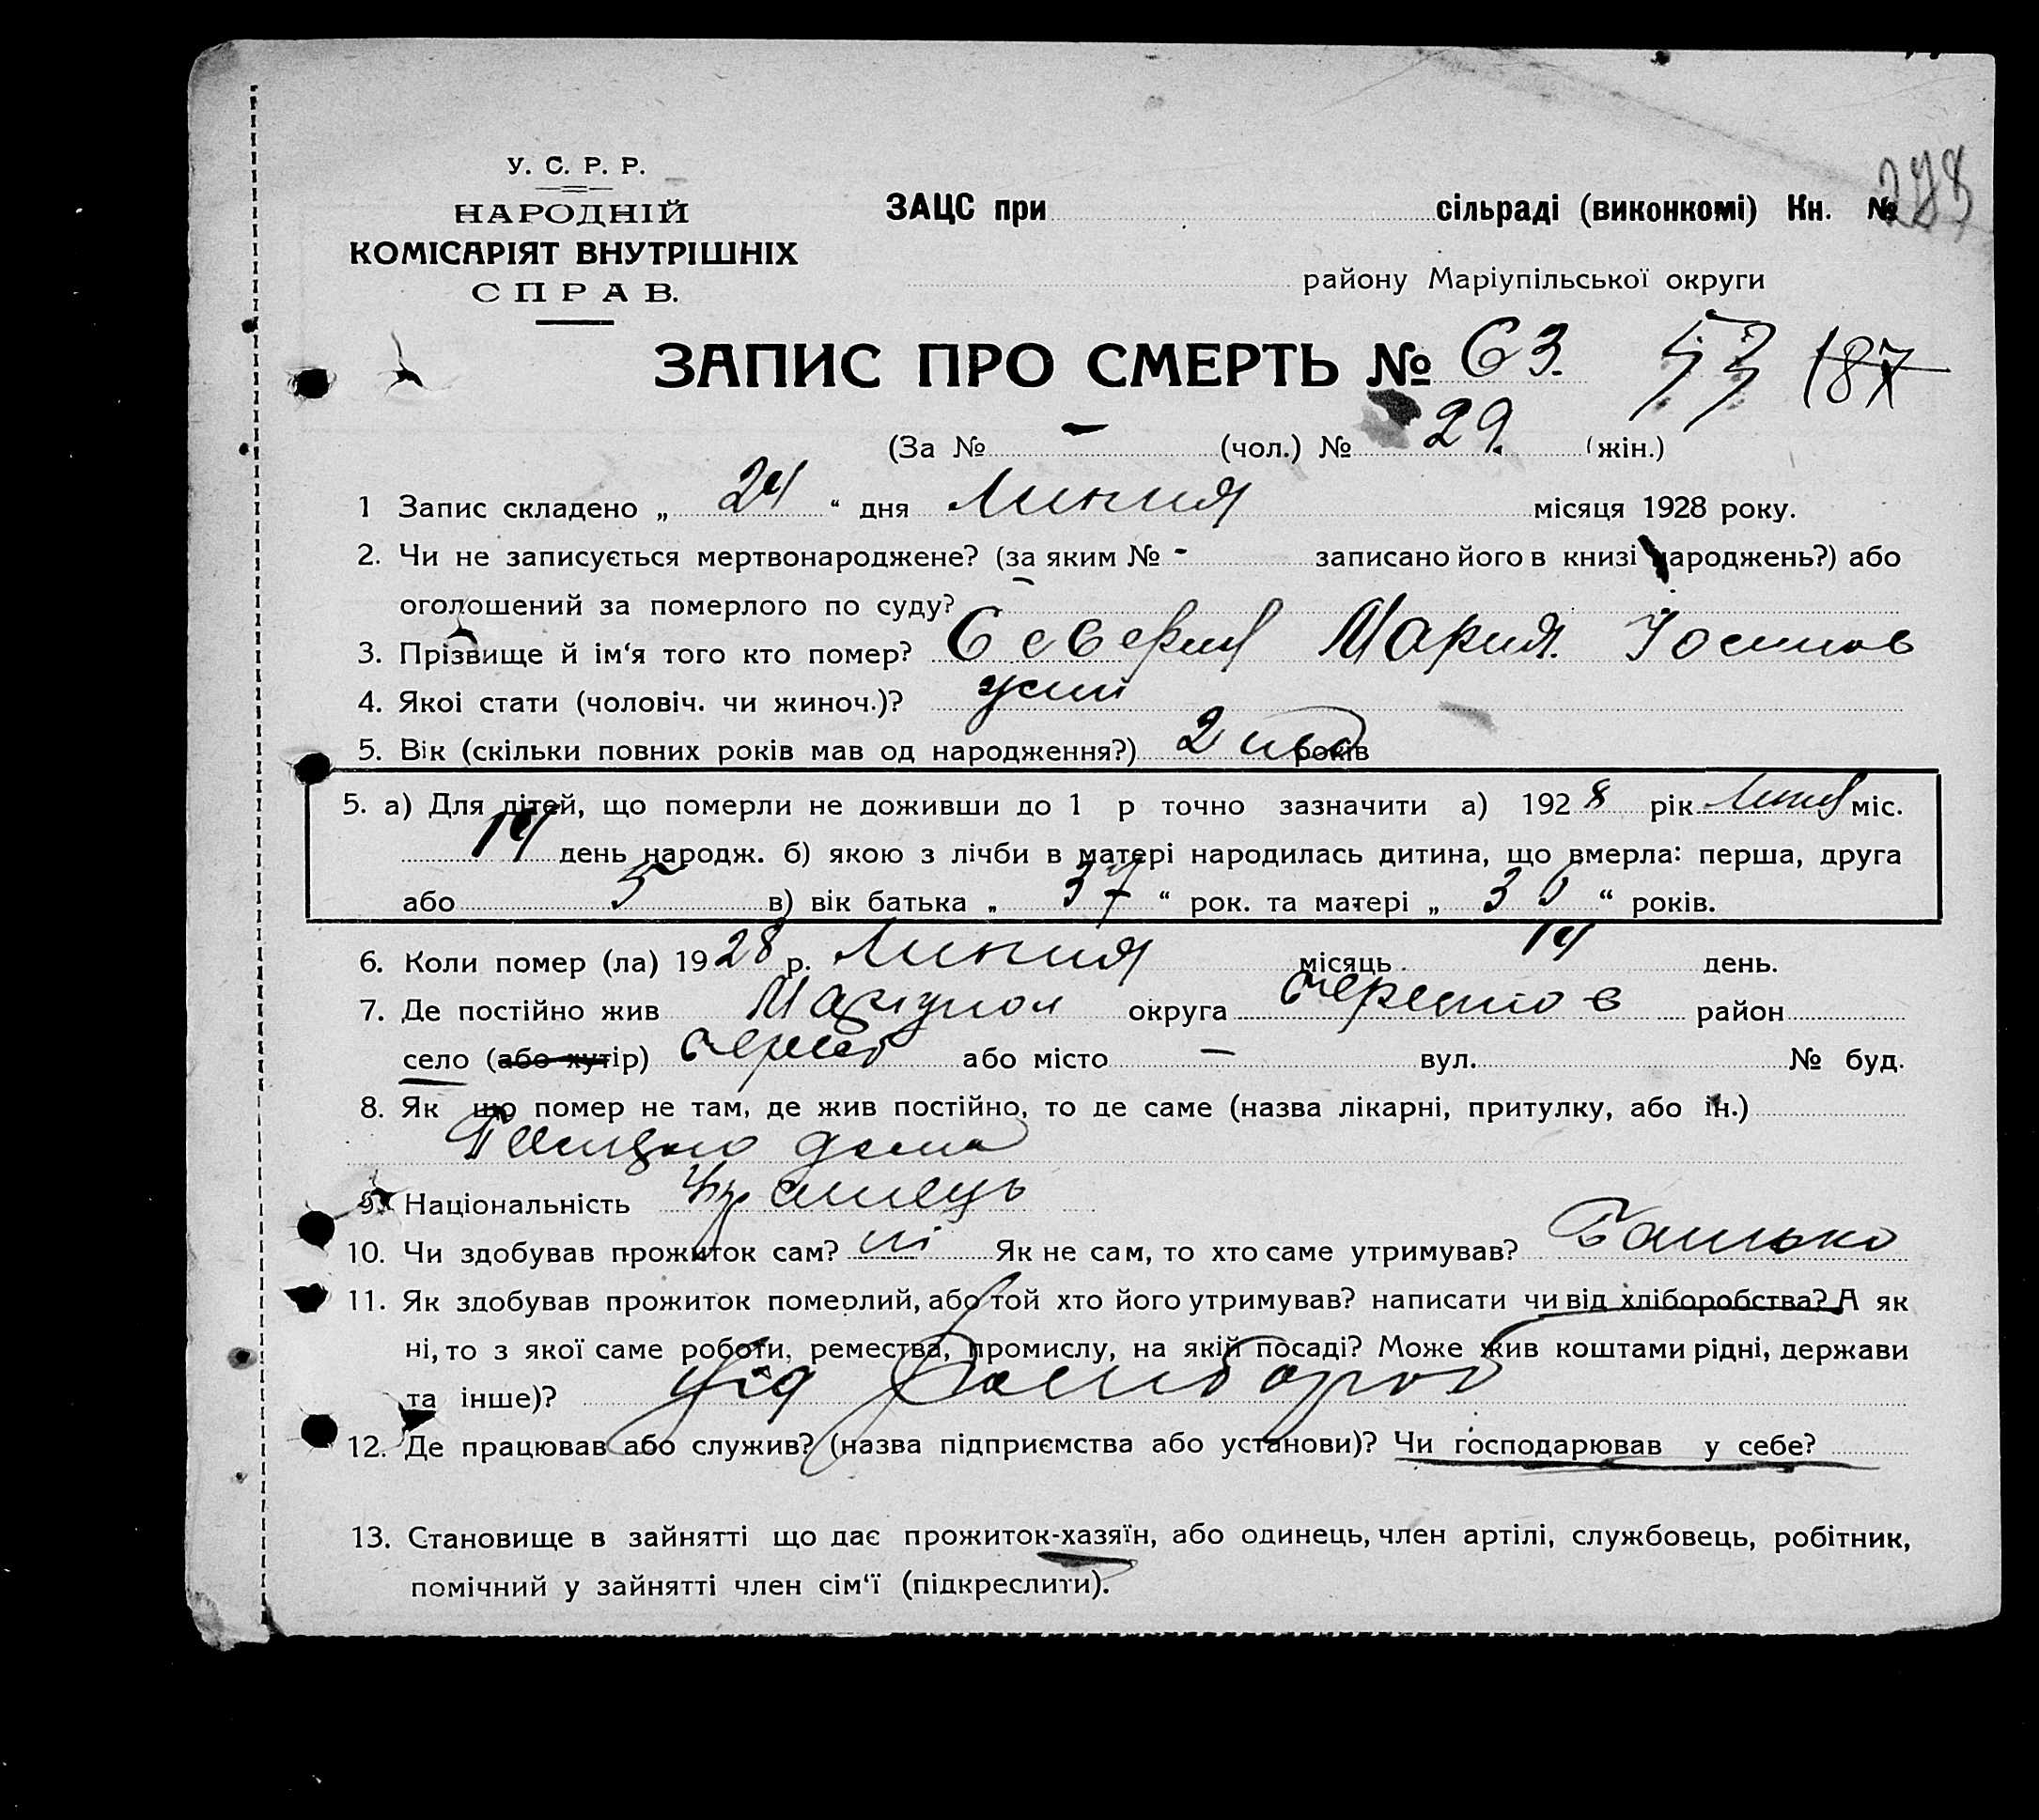 У. С. Р. Р.
НАРОДНІЙ
КОМІСАРІЯТ ВНУТРІШНІХ
СПРАВ.
ЗАЦС при сільраді (виконкомі) Кн. №
району Маріупільської округи
ЗАПИС ПРО СМЕРТЬ № 63. 53 187
(За № - (чол.) № 29. (жін.)
1 Запис складено „ 24 “ дня Липня місяця 1928 року.
2. Чи не записується мертвонароджене? (за яким № - записано його в книзі народжень?) або
оголошений за померлого по суду? -
3. Прізвище й ім‘я того кто помер? Северин Мария. Йосипов
4. Якої стати (чоловіч. чи жиноч.)? жин
5. Вік (скільки повних років мав од народження?) 2 років
5. а) Для дітей, що померли не доживши до 1 р точно зазначити а) 1928 рік Липня міс.
14 день народж. б) якою з лічби в матері народилась дитина, що вмерла: перша, друга
або 5 в) вік батька „ 37 “ рок. та матері „ 30 “ років.
6. Коли помер (ла) 1928 р. Липня місяць 14 день.
7. Де постійно жив Маріупол округа район
село (або хутір) або місто — вул. № буд.
8. Як що помер не там, де жив постійно, то де саме (назва лікарні, притулку, або ін.)
дома
9. Національність
10. Чи здобував прожиток сам? ні Як не сам, то хто саме утримував? Батько
11. Як здобував прожиток померлий, або той хто його утримував? написати чи від хліборобства? А як
ні, то з якої саме роботи, ремества, промислу, на якій посаді? Може жив коштами рідні, держави
та інше)? Від
12. Де працював або служив? (назва підприємства або установи)? Чи господарював у себе?
13. Становище в зайнятті що дає прожиток-хазяїн, або одинець, член артілі, службовець, робітник,
помічний у зайнятті член сім‘ї (підкреслити).